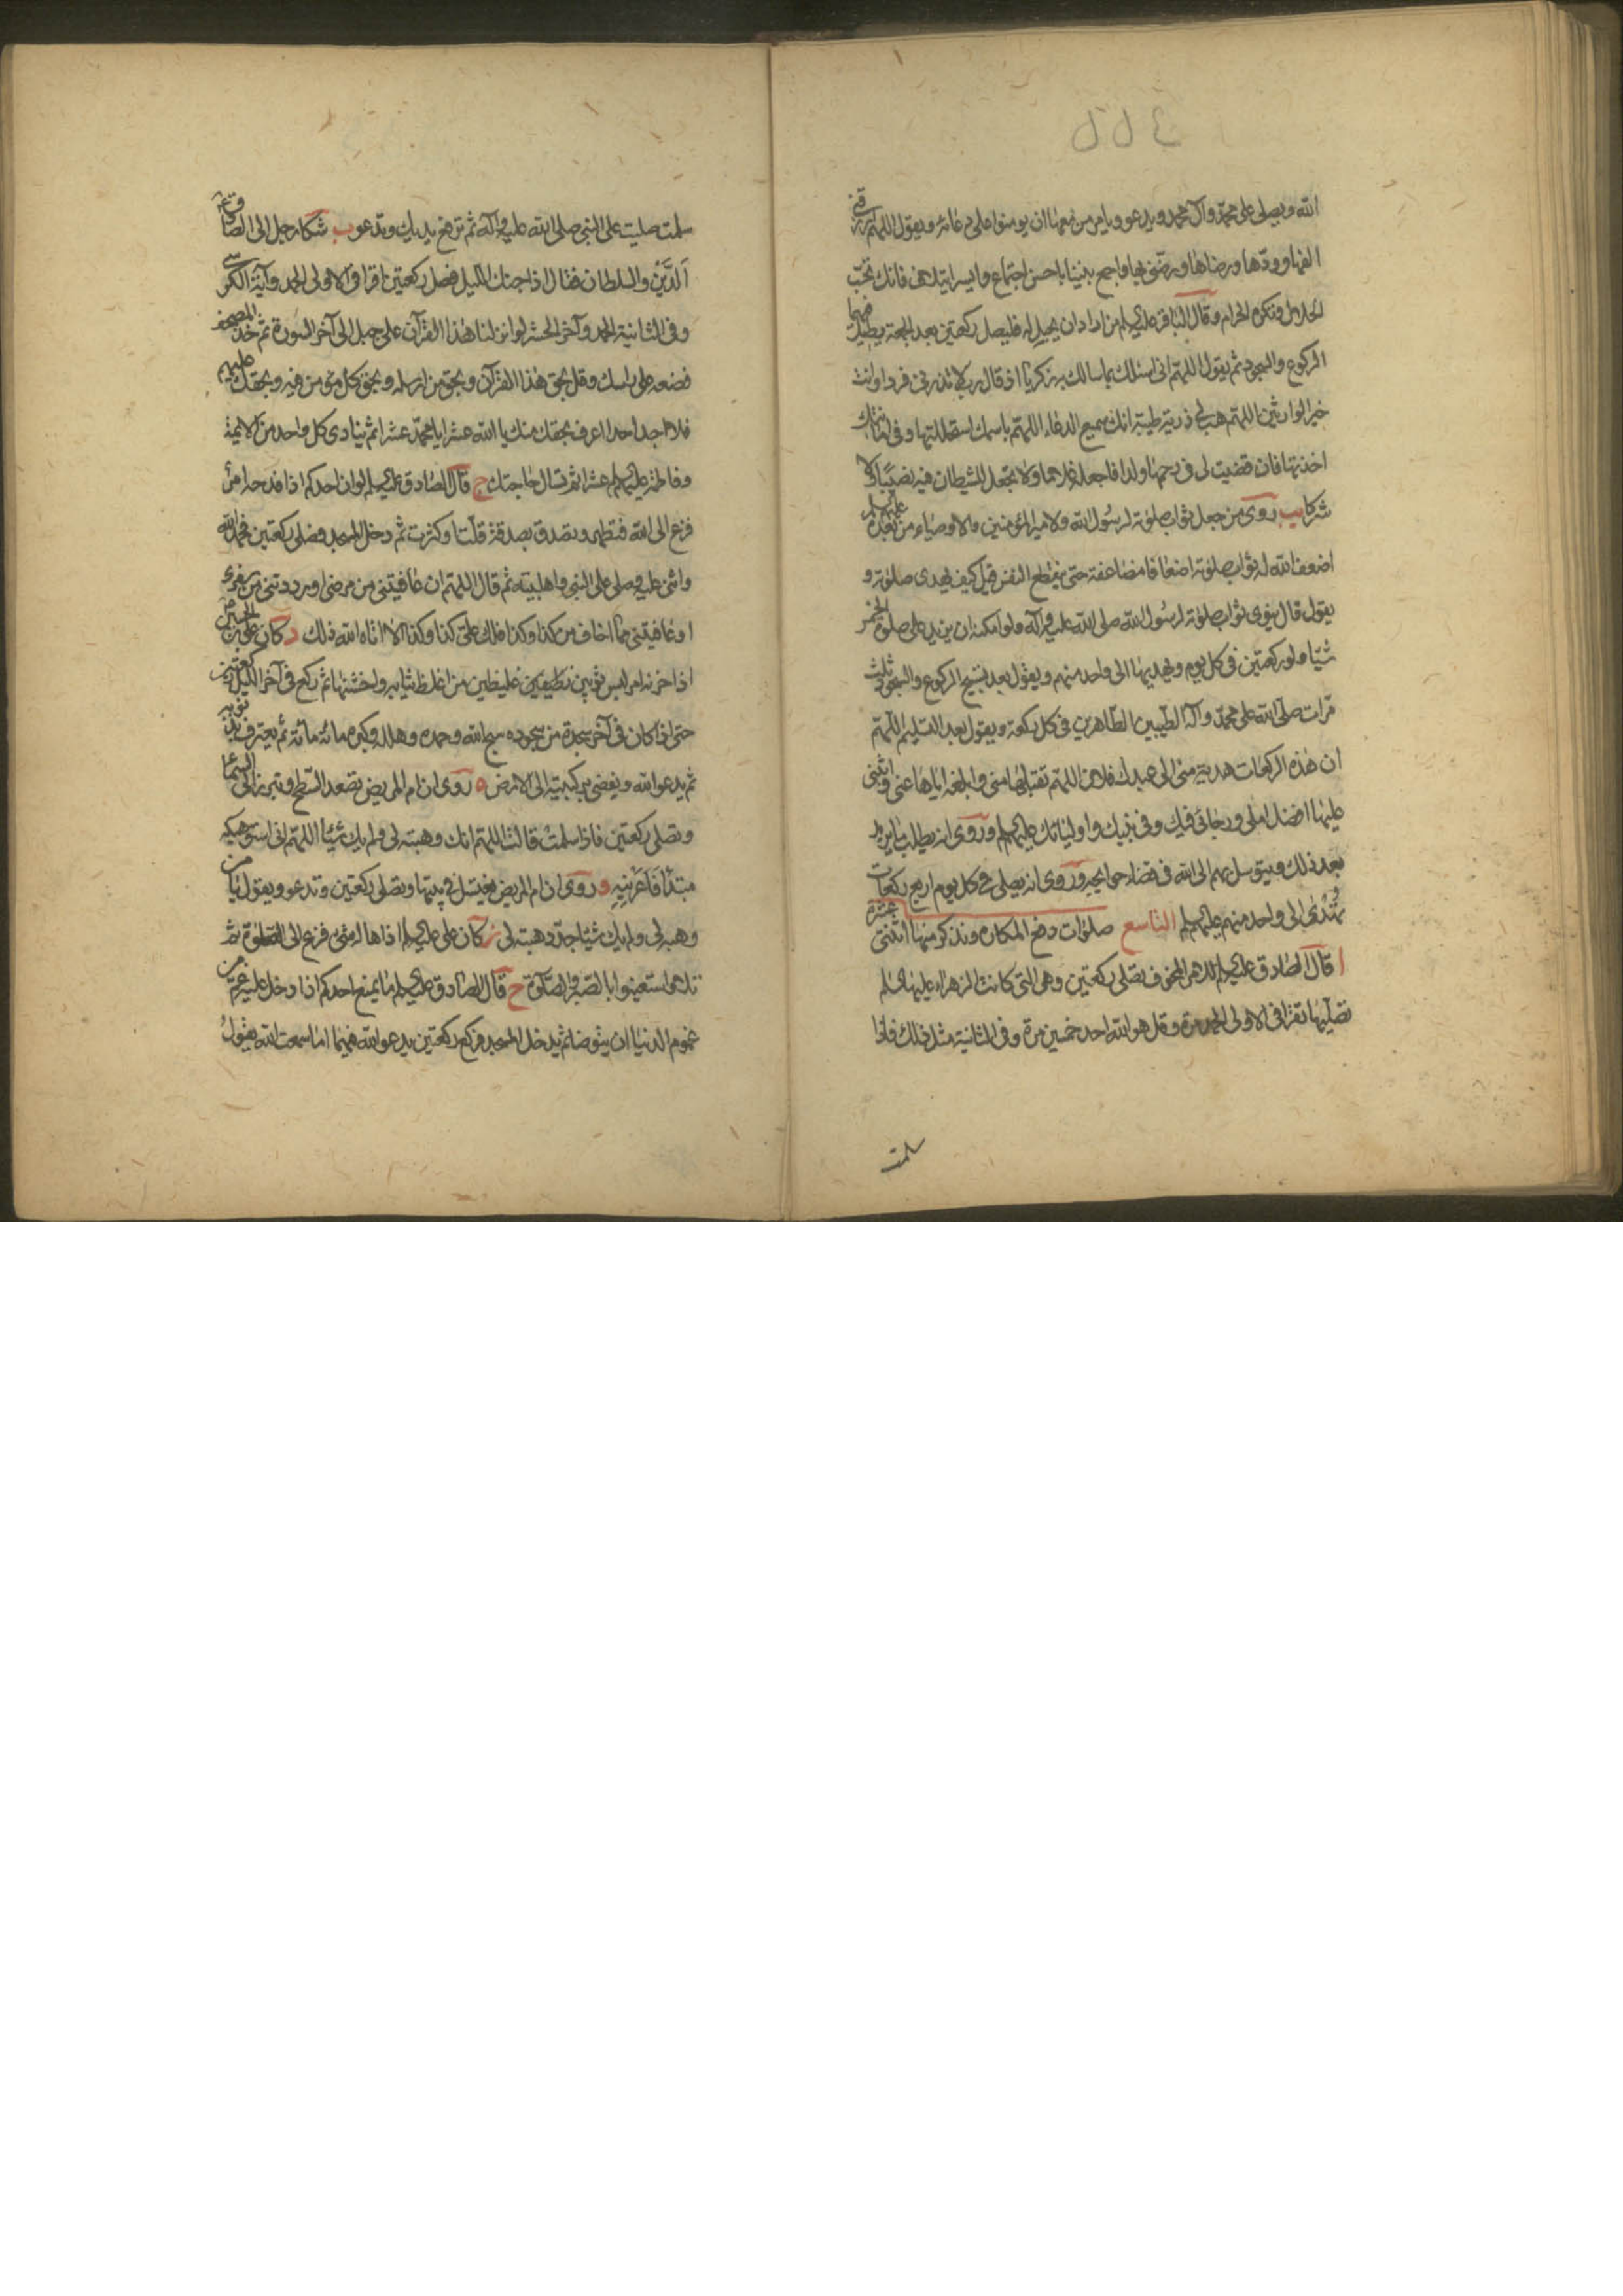 الله ويصلى على محمد وآل محمد ويدعو ويامر من معها ان يومنوا على دعائه ويقول اللهم ارزقنى
الفها وودها ورضاها ورضنى بها واجمع بيننا باحسن اجتماع وايسر ايتلاف فانك تحب
الحلال وتكره الحرام وقال الباقر عليه السلم من اراد ان يحبل له فليصل ركعتين بعد الجمعة يطيل فيهما
الركوع والسجود ثم يقول اللهم انى اسئلك بما سالك به زكريا اذ قال رب لا تذرنى فردا وانت
خير الوارثين اللهم هب لى ذرية طيبة انك سميع الدعاء اللهم باسمك استحللتها وفى امانتك
اخذتها فان قضيت لى فى رحمها ولدا فاجعله غلاما ولا تجعل للشيطان فيه نصيبا ولا
شركا يب روى من جعل ثواب صلوته لرسول الله ولامير المؤمنين والاوصياء من بعده عليهم السلم
اضعف الله له ثواب صلوته اضعافا مضاعفة حتى ينقطع النفس قيل كيف يهدى صلوته و
يقول قال ينوى ثواب صلوته لرسول الله صلى الله عليه وآله ولو امكنه ان يزيد على صلوة الخمس
شيئا ولو ركعتين فى كل يوم ويهديها الى واحد منهم ويقول بعد تسبيح الركوع والسجود ثلث
مرات صلى الله على محمد وآله الطيبين الطاهرين فى كل ركعة ويقول بعد التسليم اللهم
ان هذه الركعات هدية منى الى عبدك فلان اللهم تقبلها منى وابلغه اياها عنى واثبنى
عليها افضل املى ورجائى فيك وفى نبيك واوليائك عليهم السلم وروى انه يطلب ما يريد
بعد ذلك ويتوسل بهم الى الله فى قضاء حوايجه وروى انه يصلى فى كل يوم اربع ركعات
تهدى الى واحد منهم عليهم السلم التاسع صلوات دفع المكاره ونذكر منها اثنتى عشرة
ا قال الصادق عليه السلم للامر المخوف تصلى ركعتين وهى التى كانت الزهراء عليها السلم
تصليها تقرا فى الاولى الحمد مرة وقل هو الله احد خمسين مرة وفى الثانية مثل ذلك فاذا
سلمت
سلمت صليت على النبى صلى الله عليه وآله ثم ترفع يديك وتدعو ب شكا رجل الى الصادق ع
الدين والسلطان فقال اذا جنك الليل فصل ركعتين اقرا فى الاولى الحمد وآية الكرسى
وفى الثانية الحمد وآخر الحشر لو انزلنا هذا القرآن على جبل الى آخر السورة ثم خذ المصحف
فضعه على راسك وقل بحق هذا القرآن وبحق من ارسله وبحق كل مؤمن فيه وبحقك عليهم
فلا احد احدا اعرف بحقك منك يا الله عشرا يا محمد عشرا ثم ينادى كل واحد من الائمة
وفاطمة عليهم السلم عشرا ثم تسال حاجتك ج قال الصادق عليه السلم لو ان احدكم اذا فدحه امر
فزع الى الله فتطهر وتصدق بصدقة قلت او كثرت ثم دخل المسجد فصلى ركعتين فحمد الله
واثنى عليه وصلى على النبى واهلبيته ثم قال اللهم ان عافيتنى من مرضى او رددتنى من سفرى
او عافيتنى مما اخاف من كذا وكذا فلك على كذا وكذا الا اتاه الله ذلك د كان على بن الحسين ع
اذا احزنه امر لبس ثوبين نظيفين غليظين من اغلظ ثيابه واخشنها ثم ركع فى آخر الليل ركعتين
حتى اذا كان فى آخر سجدة من سجوده سبح الله وحمده وهلله وكبره مائة مائة ثم يعترف بذنوبه
ثم يدعو الله ويفضى بركبتيه الى الارض ه روى ان ام المريض تصعد السطح وتبرز الى السماء
وتصلى ركعتين فاذا سلمت قالت اللهم انك وهبته لى ولم يك شيئا اللهم انى استوهبكه
مبتدئا فاعرنيه و وروى ان ام المريض يغتسل فى بيتها وتصلى ركعتين وتدعو ويقول يا من
وهبه لى ولم يك شيئا جدد هبته لى ز كان على عليه السلم اذا هاله شىء فزع الى الصلوة ثم
تلا هى استعينوا بالصبر والصلوة ح قال الصادق عليه السلم ما يمنع احدكم اذا دخل عليه غم من
غموم الدنيا ان يتوضا ثم يدخل المسجد فيركع ركعتين يدعو الله فيهما اما سمعت الله يقول